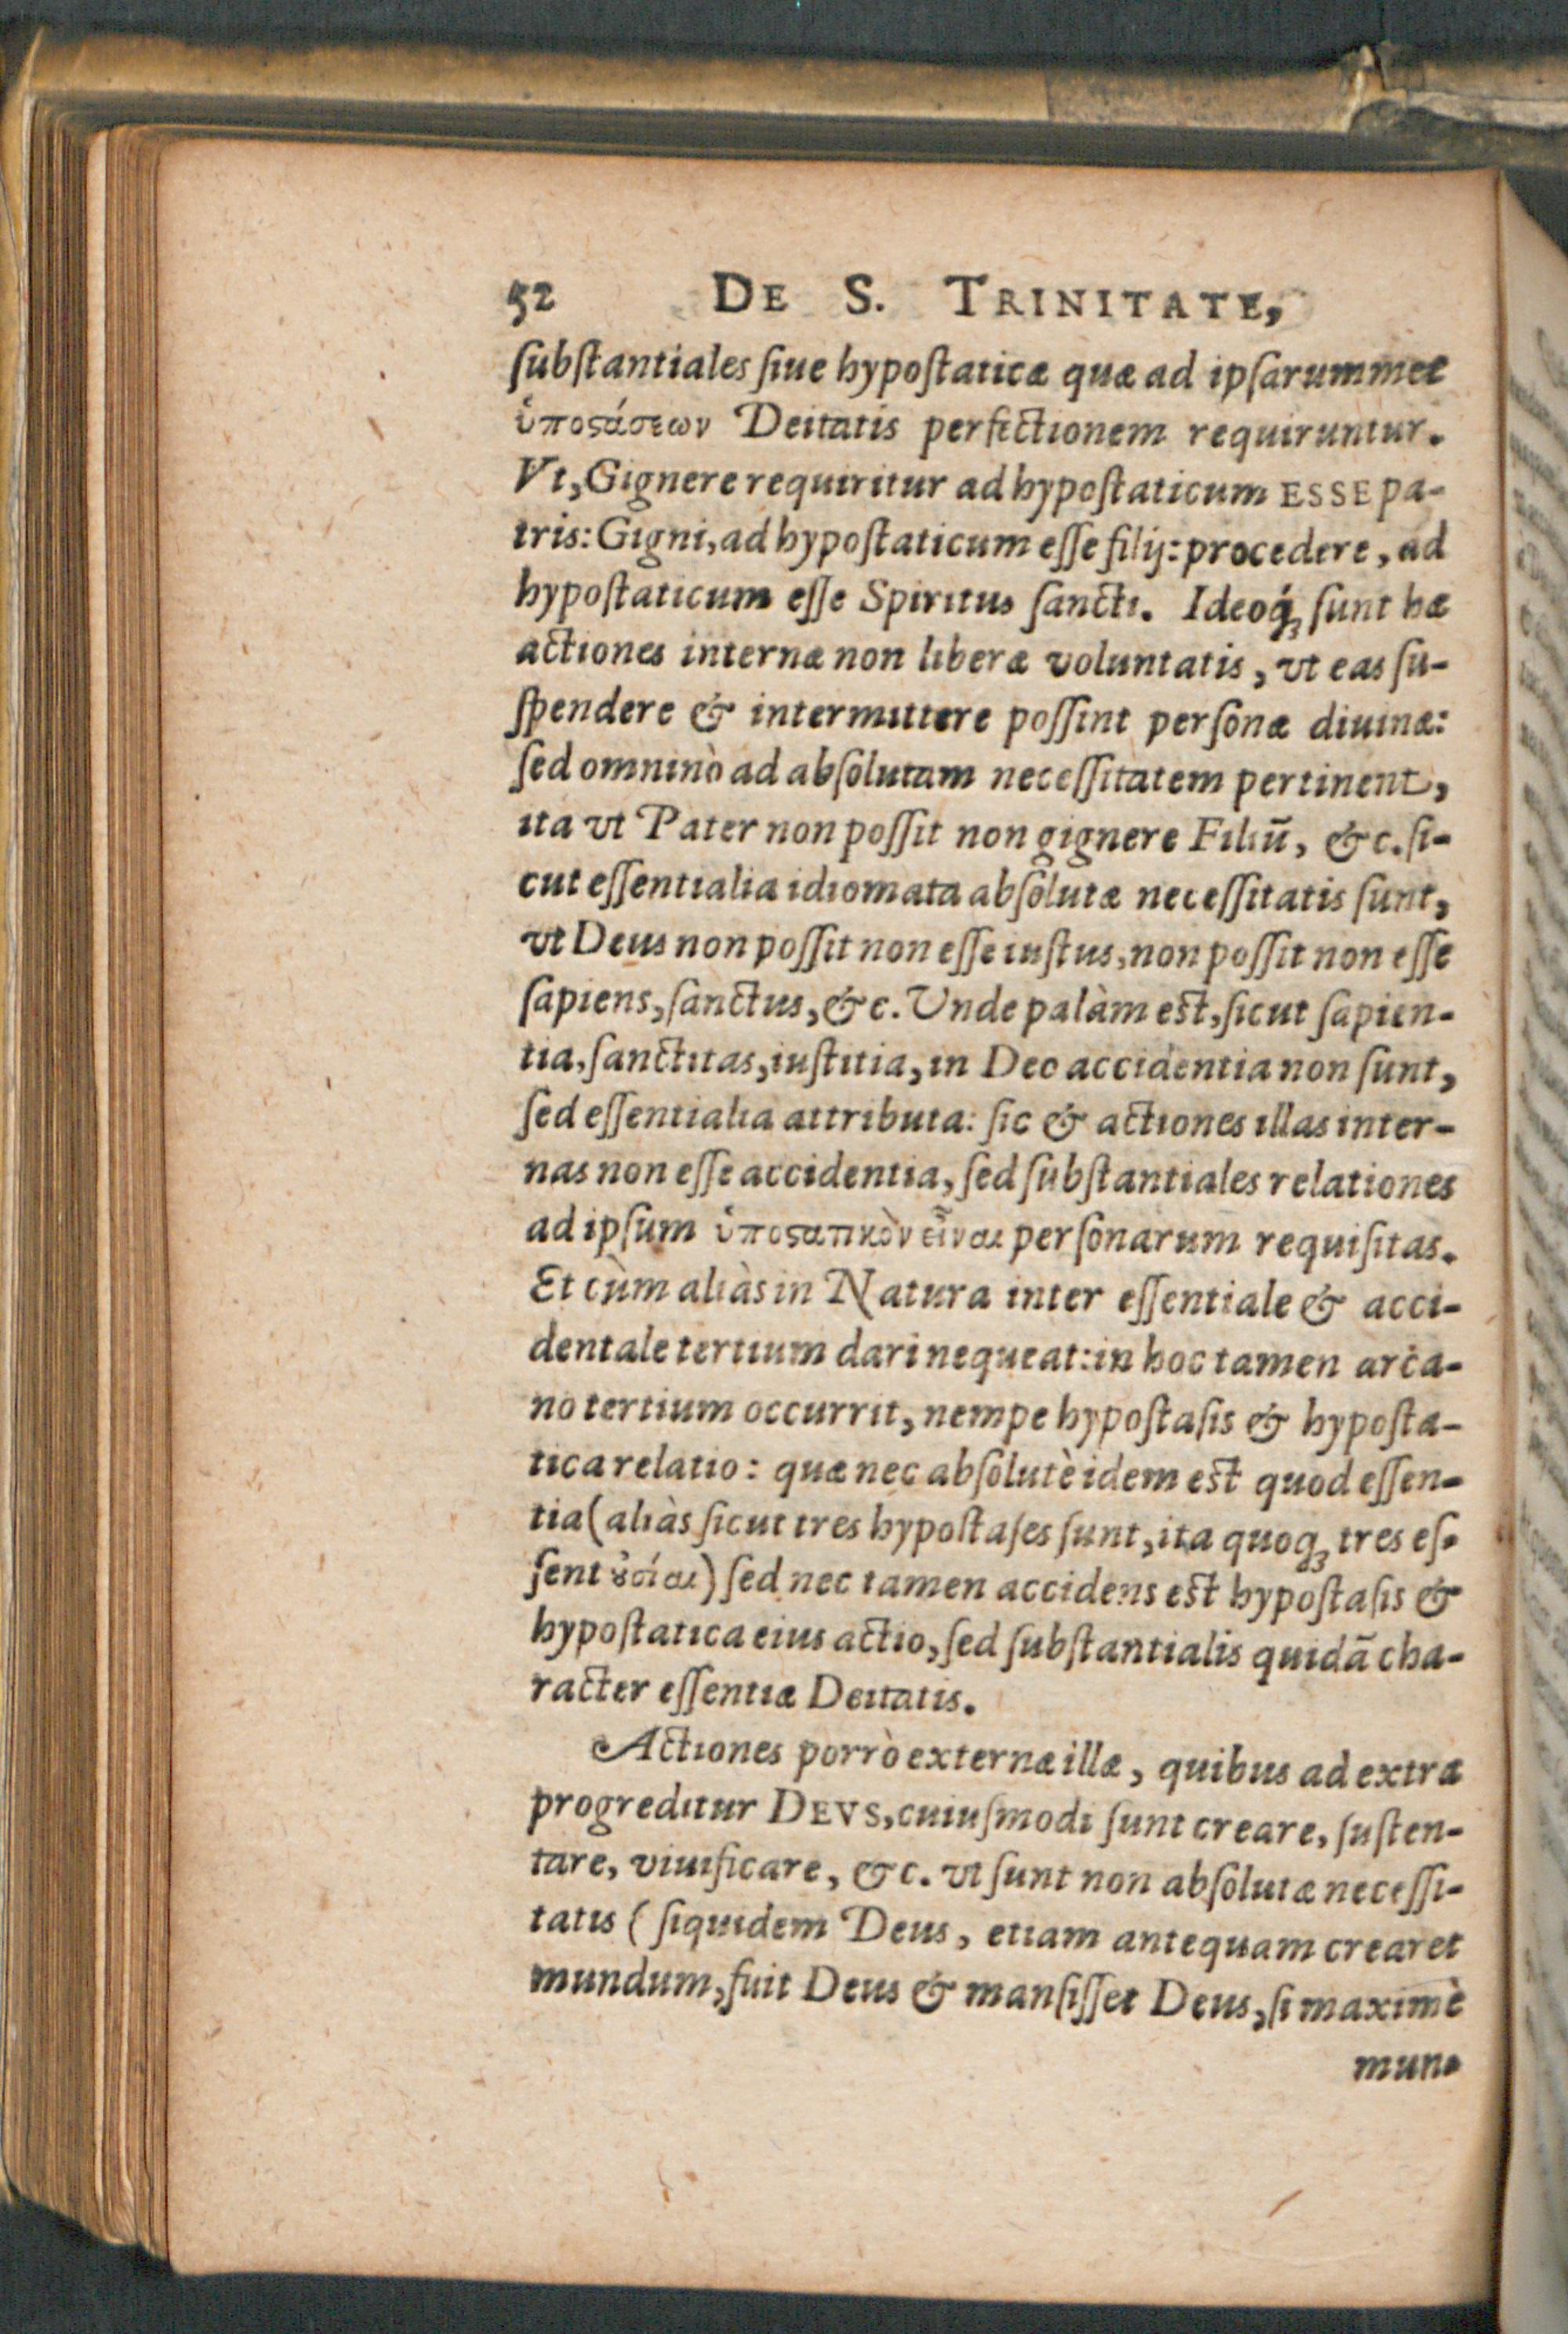 52 DE S. TRINITATE,
ſubſtantiales ſiue hypoſtaticæ quæ ad ipſarummet
ὑποϛάσεων Deitatis perfectionem requiruntur.
Vt, Gignere requiritur ad hypoſtaticum ESSE pa-
tris: Gigni, ad hypoſtaticum eſſe filij: procedere, ad
hypoſtaticum eſſe Spiritus ſancti. Ideoq́ꝫ ſunt hæ
actiones internæ non liberæ voluntatis, vt eas ſu-
ſpendere & intermittere poſſint perſonæ diuinæ:
ſed omninò ad abſolutam neceſſitatem pertinent,
ita vt Pater non poſſit non gignere Filiū, &c. ſi-
cut eſſentialia idiomata abſolutæ neceſſitatis ſunt,
vt Deus non poſſit non eſſe iuſtus, non poſſit non eſſe
ſapiens, ſanctus, &c. Unde palàm est, ſicut ſapien-
tia, ſanctitas, iuſtitia, in Deo accidentia non ſunt,
ſed eſſentialia attributa: ſic & actiones illas inter-
nas non eſſe accidentia, ſed ſubſtantiales relationes
ad ipſum ὑποϛατικὸν εἶναι perſonarum requiſitas.
Et cùm aliàs in Natura inter eſſentiale & acci-
dentale tertium dari nequeat: in hoc tamen arca-
no tertium occurrit, nempe hypoſtaſis & hypoſta-
tica relatio: quæ nec abſolutè idem est quod eſſen-
tia (aliàs ſicut tres hypoſtaſes ſunt, ita quoqꝫ tres eſ-
ſent ȣσίαι) ſed nec tamen accidens est hypoſtaſis &
hypoſtatica eius actio, ſed ſubſtantialis quidã cha-
racter eſſentiæ Deitatis.
Actiones porrò externæ illæ, quibus ad extra
progreditur DEVS, cuiuſmodi ſunt creare, ſuſten-
tare, viuificare, &c. vt ſunt non abſolutæ neceſſi-
tatis (ſiquidem Deus, etiam antequam crearet
mundum, fuit Deus & manſiſſet Deus, ſi maximè
mun-